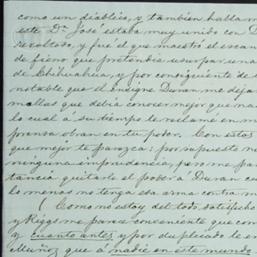 como un diablico, y tambien habla m
este Dn José estaba muy unido con D
revoltado, y fué el que maestró el escan
de fierro que pretendia usurpar una
de Chihuahua, y por consiguiente de
notable que el insigne Duran me deja
mallas que debia conocer mejor que na
lo cual á su tiempo te reclamé en m
prensa obran en tu poder. Con estos
que mejor te parezca: por supuesto n
ninguna imprudencia, pero me pa
tancia quitarle el poder á Duran cu
lo menos no tenga esa arma contra m
Como no estoy del todo satisfecho
y Riggs me parece conveniente que com
y cuanto antes y por duplicado te en
Muñoz que á nadie en este mundo